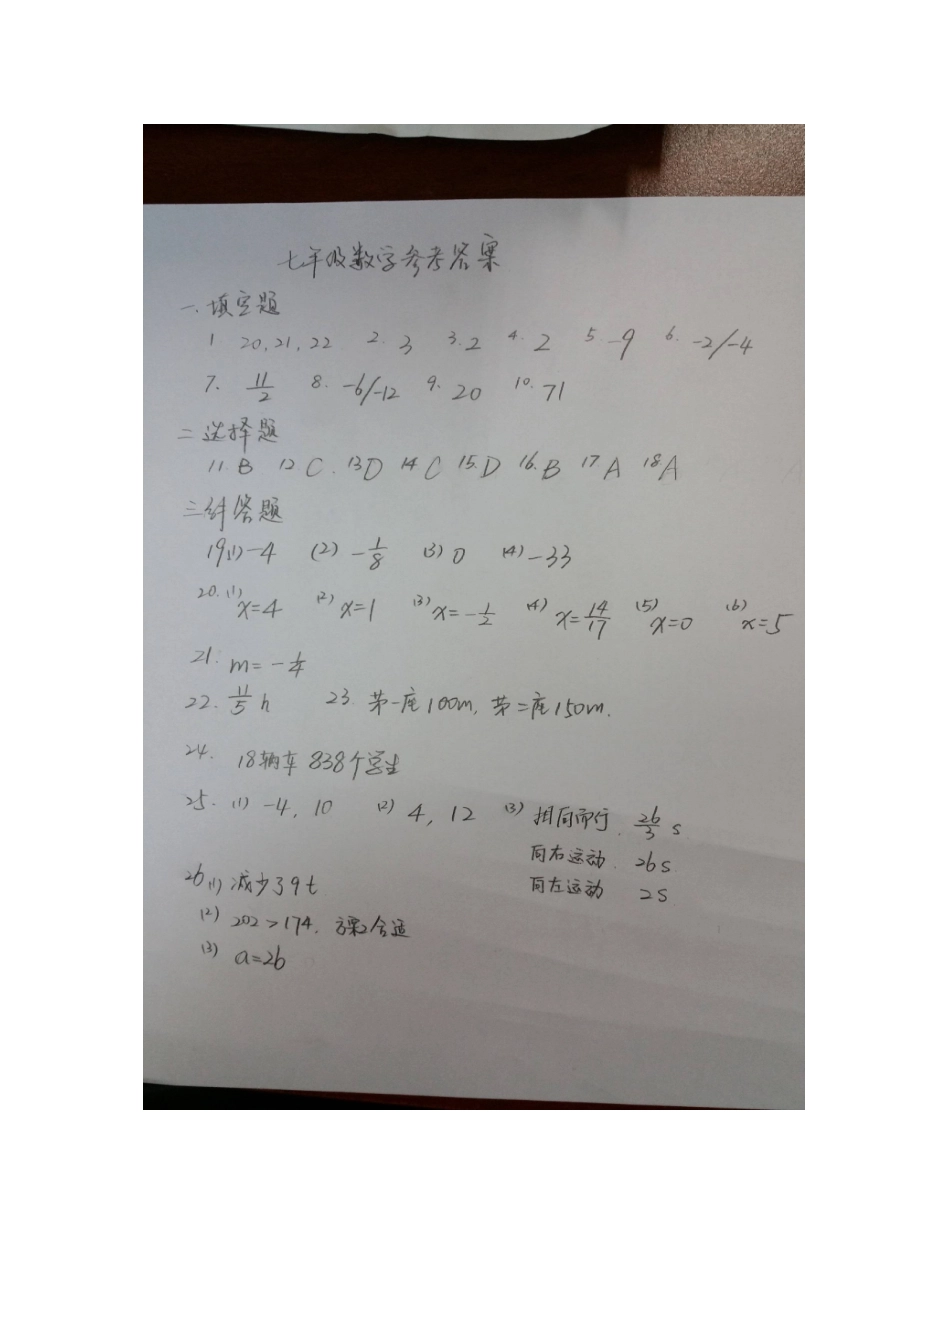 七年级数学参考答案
一.填空题
1 20,21,22 2. 3 3. 2 4. 2 5. -9 6. -2/-4
7. 11/2 8. -6/-12 9. 20 10. 71
二选择题
11. B 12 C. 13 D 14 C 15. D 16. B 17 A 18 A
三解答题
19(1) -4 (2) -1/8 (3) 0 (4) -33
20.(1) x=4 (2) x=1 (3) x=-1/2 (4) x=14/17 (5) x=0 (6) x=5
21. m=-1/4
22. 11/5 h 23. 第一座100m, 第二座150m.
24. 18辆车 838个学生
25. (1) -4, 10 (2) 4, 12 (3) 相向而行. 26/3 s
向右运动. 26s
向左运动 2s
26(1) 减少了9t
(2) 202>174, 方案2合适
(3) a=2b